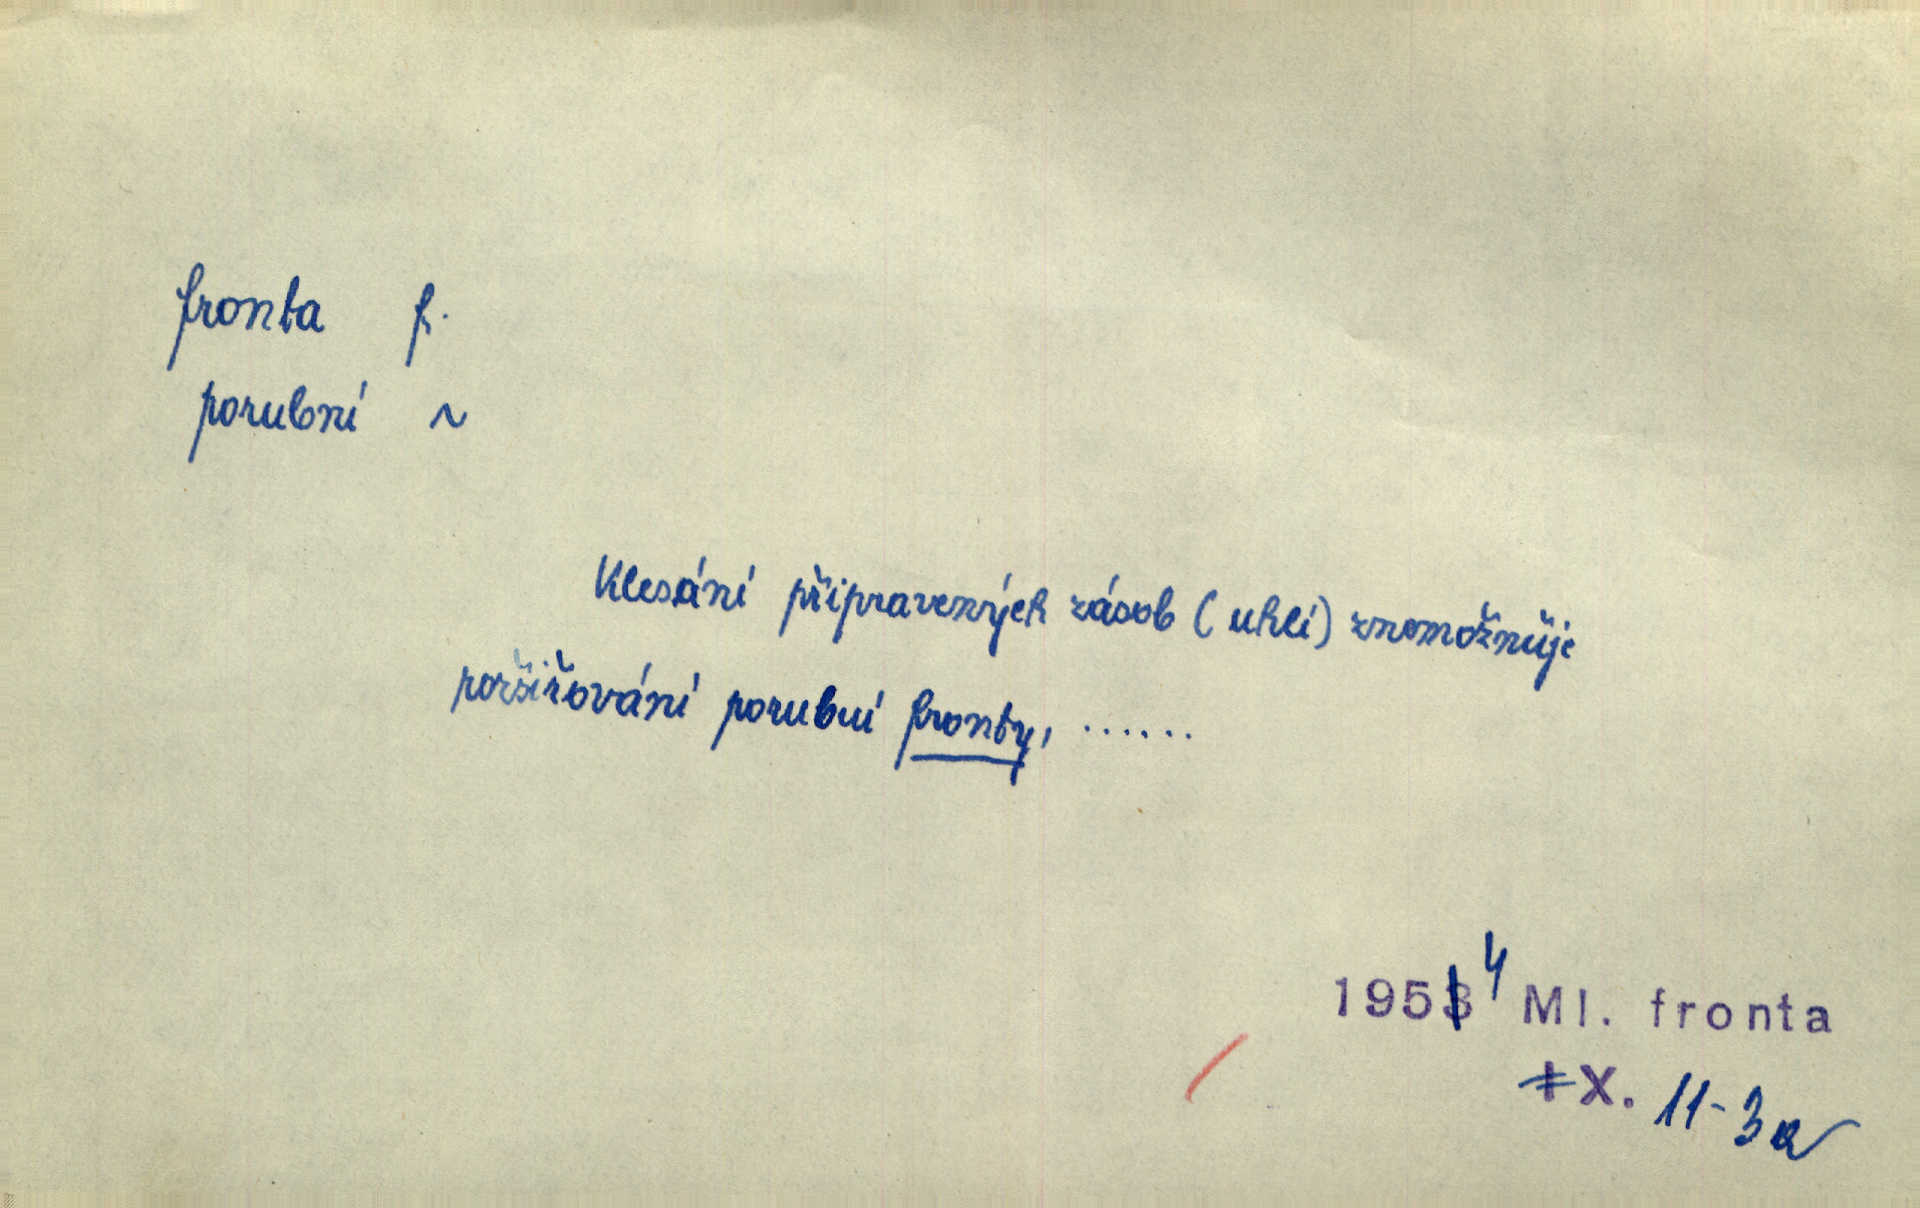 fronta f.
porubní ~
Klesání připravených zásob (uhlí) znemožňuje
rozšiřování porubní fronty, ......
1954 Ml. fronta
X. 11-3a